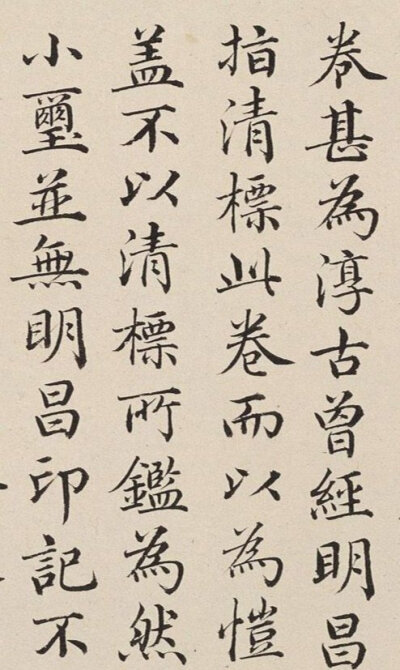 卷甚為淳古曾經明昌
指清標此卷而以為愷
盖不以清標所鑑為然
小璽並無明昌印記不